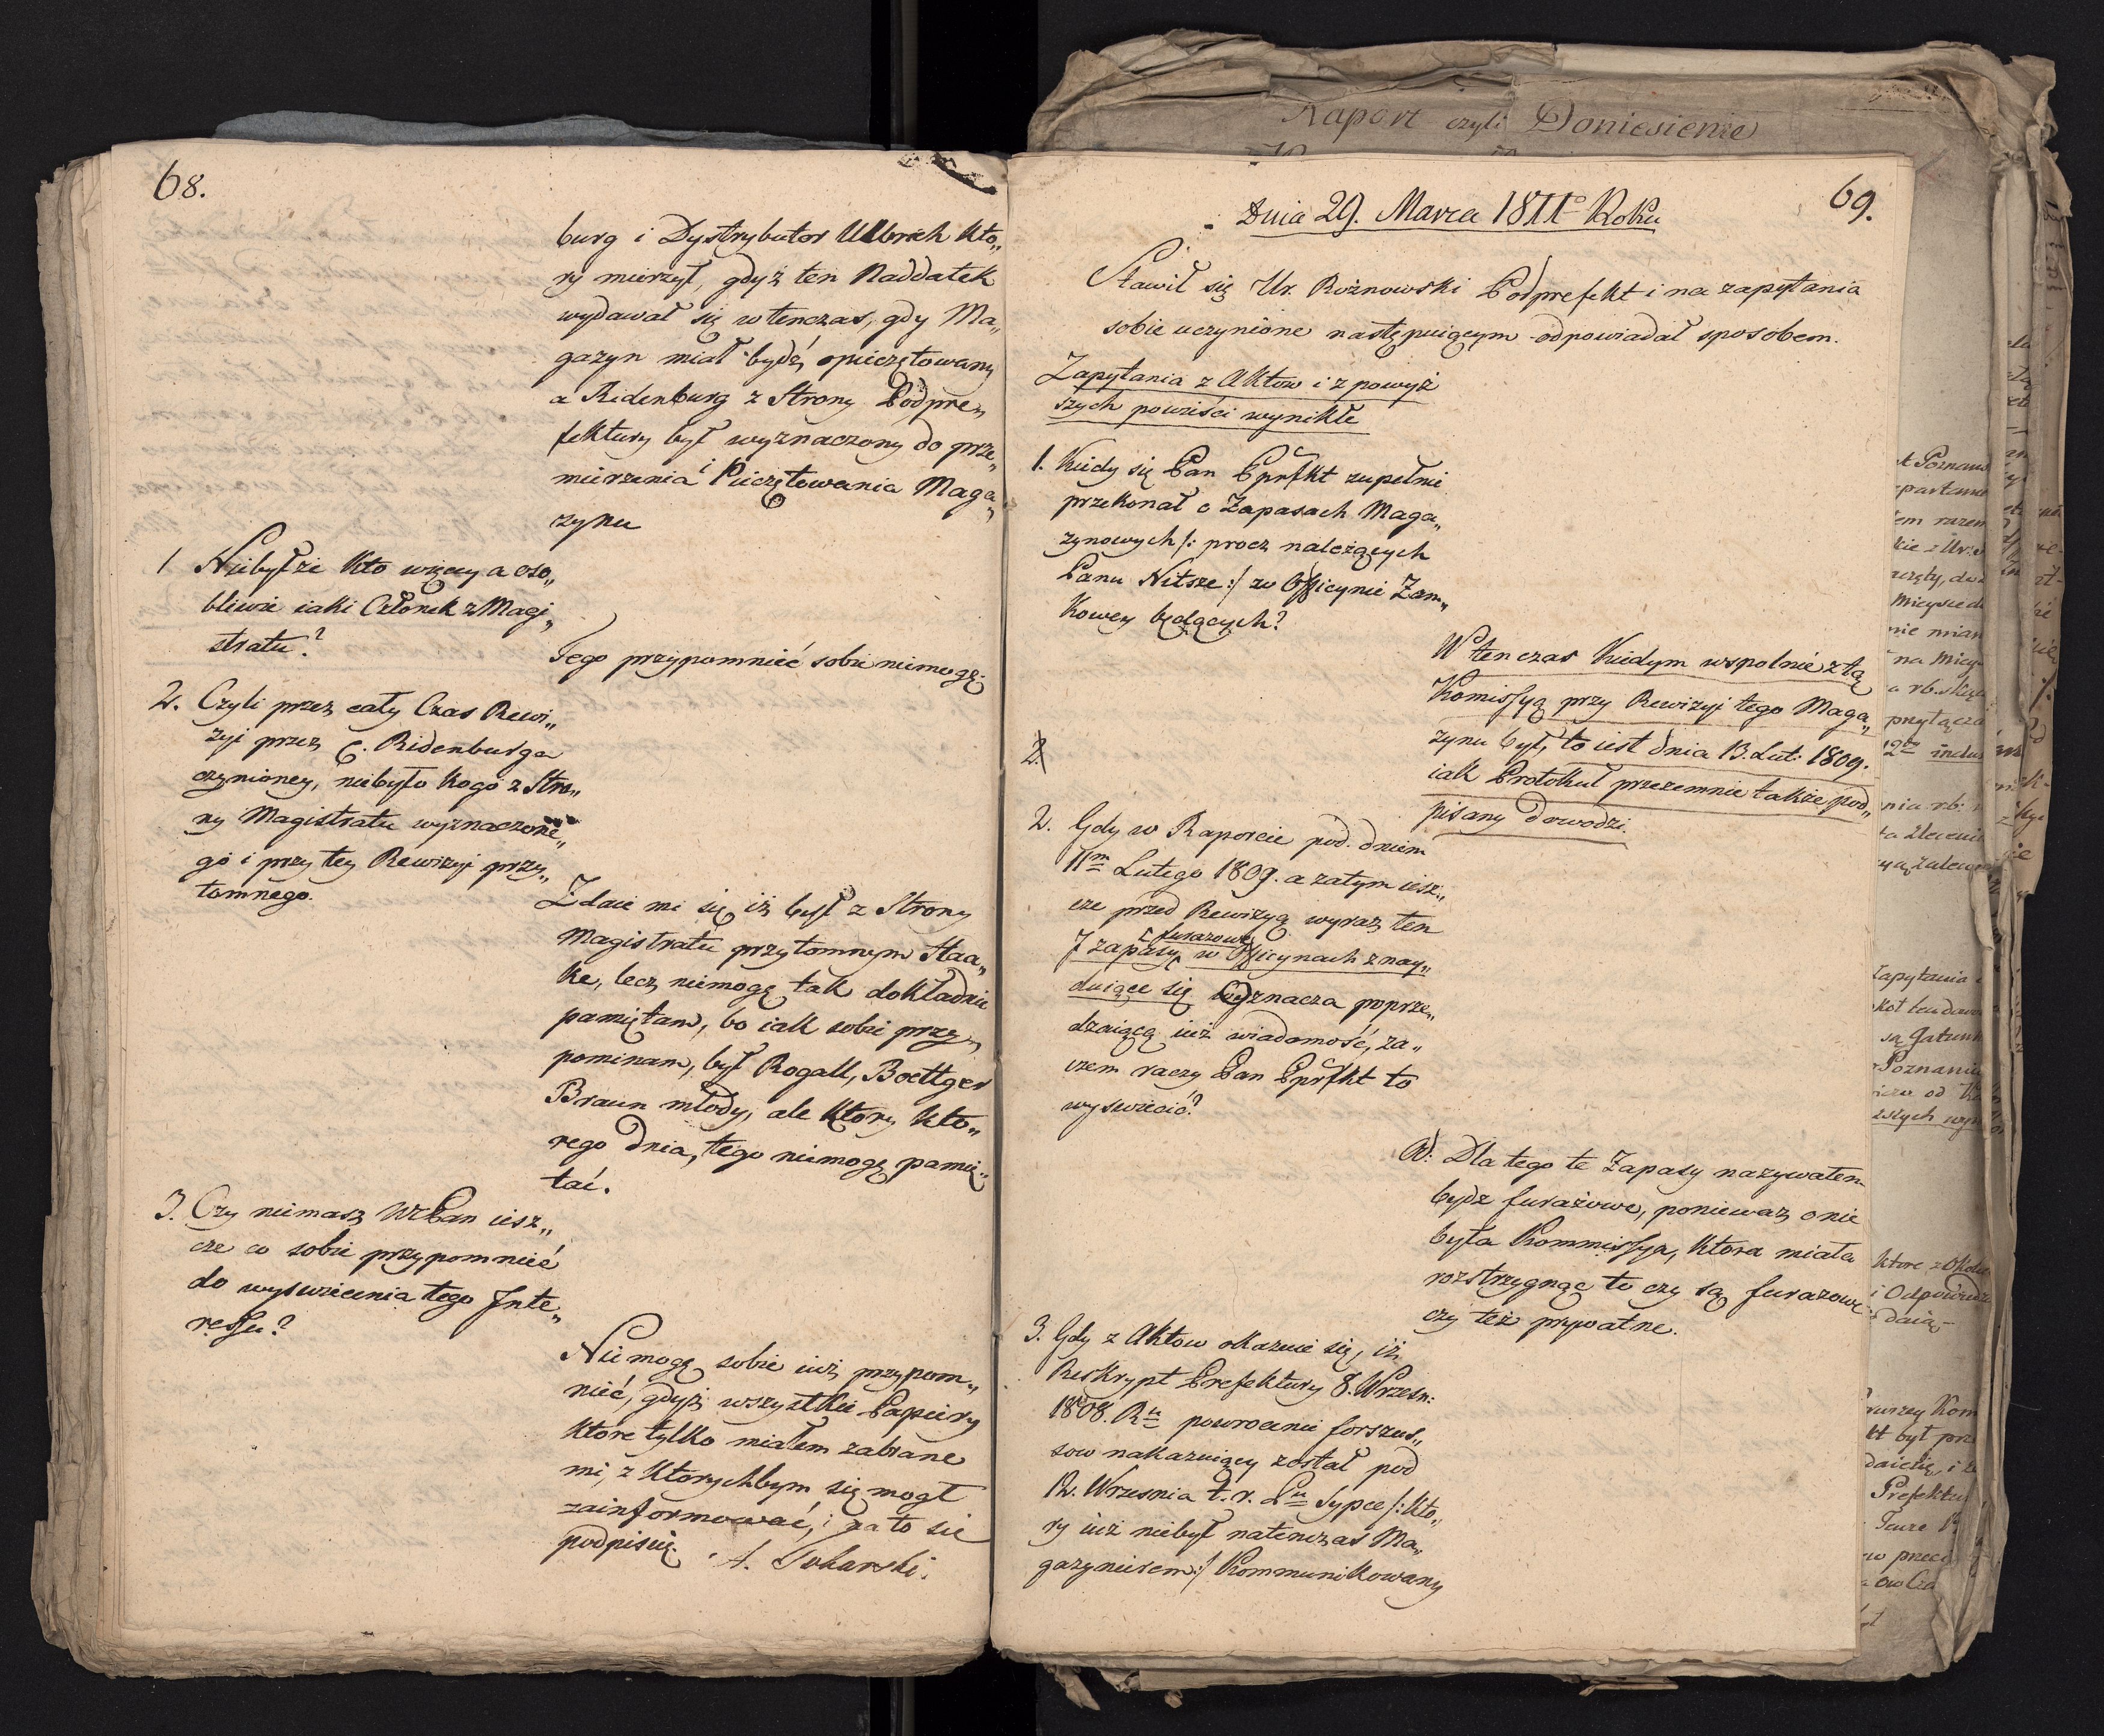 68.
burg i Dystrybutor Ulbrich kto„
ry mierzył, gdyż ten Naddatek
wydawał się wtenczas, gdy Ma„
gazyn miał bydź opieczętowany
a Ridenburg z Strony Podpre„
fektury był wyznaczony do prze„
mierzenia i Pieczętowania Maga„
zynu
1 Niebyłże kto więcey a oso„
bliwie iaki Członek z Magi„
stratu?
Tego przypomnieć sobie niemogę.
2. Czyli przez cały Czas Rewi„
zyi przez P. Ridenburga
czynioney, niebyło kogo z Stro„
ny Magistratu wyznaczone„
go i przy tey Rewizyi przy„
tomnego.
Zdaie mi się iż był z Strony
Magistratu przytomnym Staa„
ke, lecz niemogę tak dokładnie
pamiętam, bo iak sobie przy„
pominam, był Rogall, Boettger
Braun młody, ale ktory kto„
rego dnia, tego niemogę pamię„
tać.
3. Czy niemasz WPan iesz„
cze co sobie przypomnieć
do wyswiecenia tego Inte„
ressu?
Niemogę sobie iuż przypom„
nieć, gdyż wszystkie Papiery
ktore tylko miałem zabrane
mi, z ktorychbym się mogł
zainformować, i na to się
podpisuię. A. Tokarski.
69.
Dnia 29. Marca 1811º Roku
Stawił się Ur. Rożnowski Podprefekt i na zapytania
sobie uczynione następuiącym odpowiadał sposobem.
Zapytania z Aktow i z powyż
szych powieści wynikłe
1. Kiedy się Pan Pprfkt zupełnie
przekonał o Zapasach Maga„
zynowych /: procz należących
Panu Nitsze :/ w Officynie Zam„
kowey będących?
W ten czas kiedym wspolnie z tą
Komissyą przy Rewizyi tego Maga„
zynu był, to iest dnia 13. Lut: 1809.
iak Protokuł przezemnie także pod„
pisany dowodzi.
2.
2. Gdy w Raporcie pod dniem
11m Lutego 1809. a zatym iesz„
cze przed Rewizyą wyraz ten
furazowe
J zapasy w Officynach znay„
duiące się wyznacza poprze„
dzaiącą iuż wiadomość, za„
czem raczy Pan Pprfkt to
wyswiecić?
Od: Dla tego te Zapasy nazywałem
bydz furażowe, poniewaz o nie
była Kommissya, ktora miała
rozstrzygnąc to czy są furazowe
czy też prywatne.
3. Gdy z Aktow okazuie się, iż
Reskrypt Prefektury 8. Wrzesn:
1808. Ru powrocenie forszus„
sow nakazuiący został pod
12. Wrzesnia t. r. Pu Sypce /: kto„
ry iuż niebył natenczas Ma„
gazynierem :/ Kommunikowany
Raport czyli Doniesienie